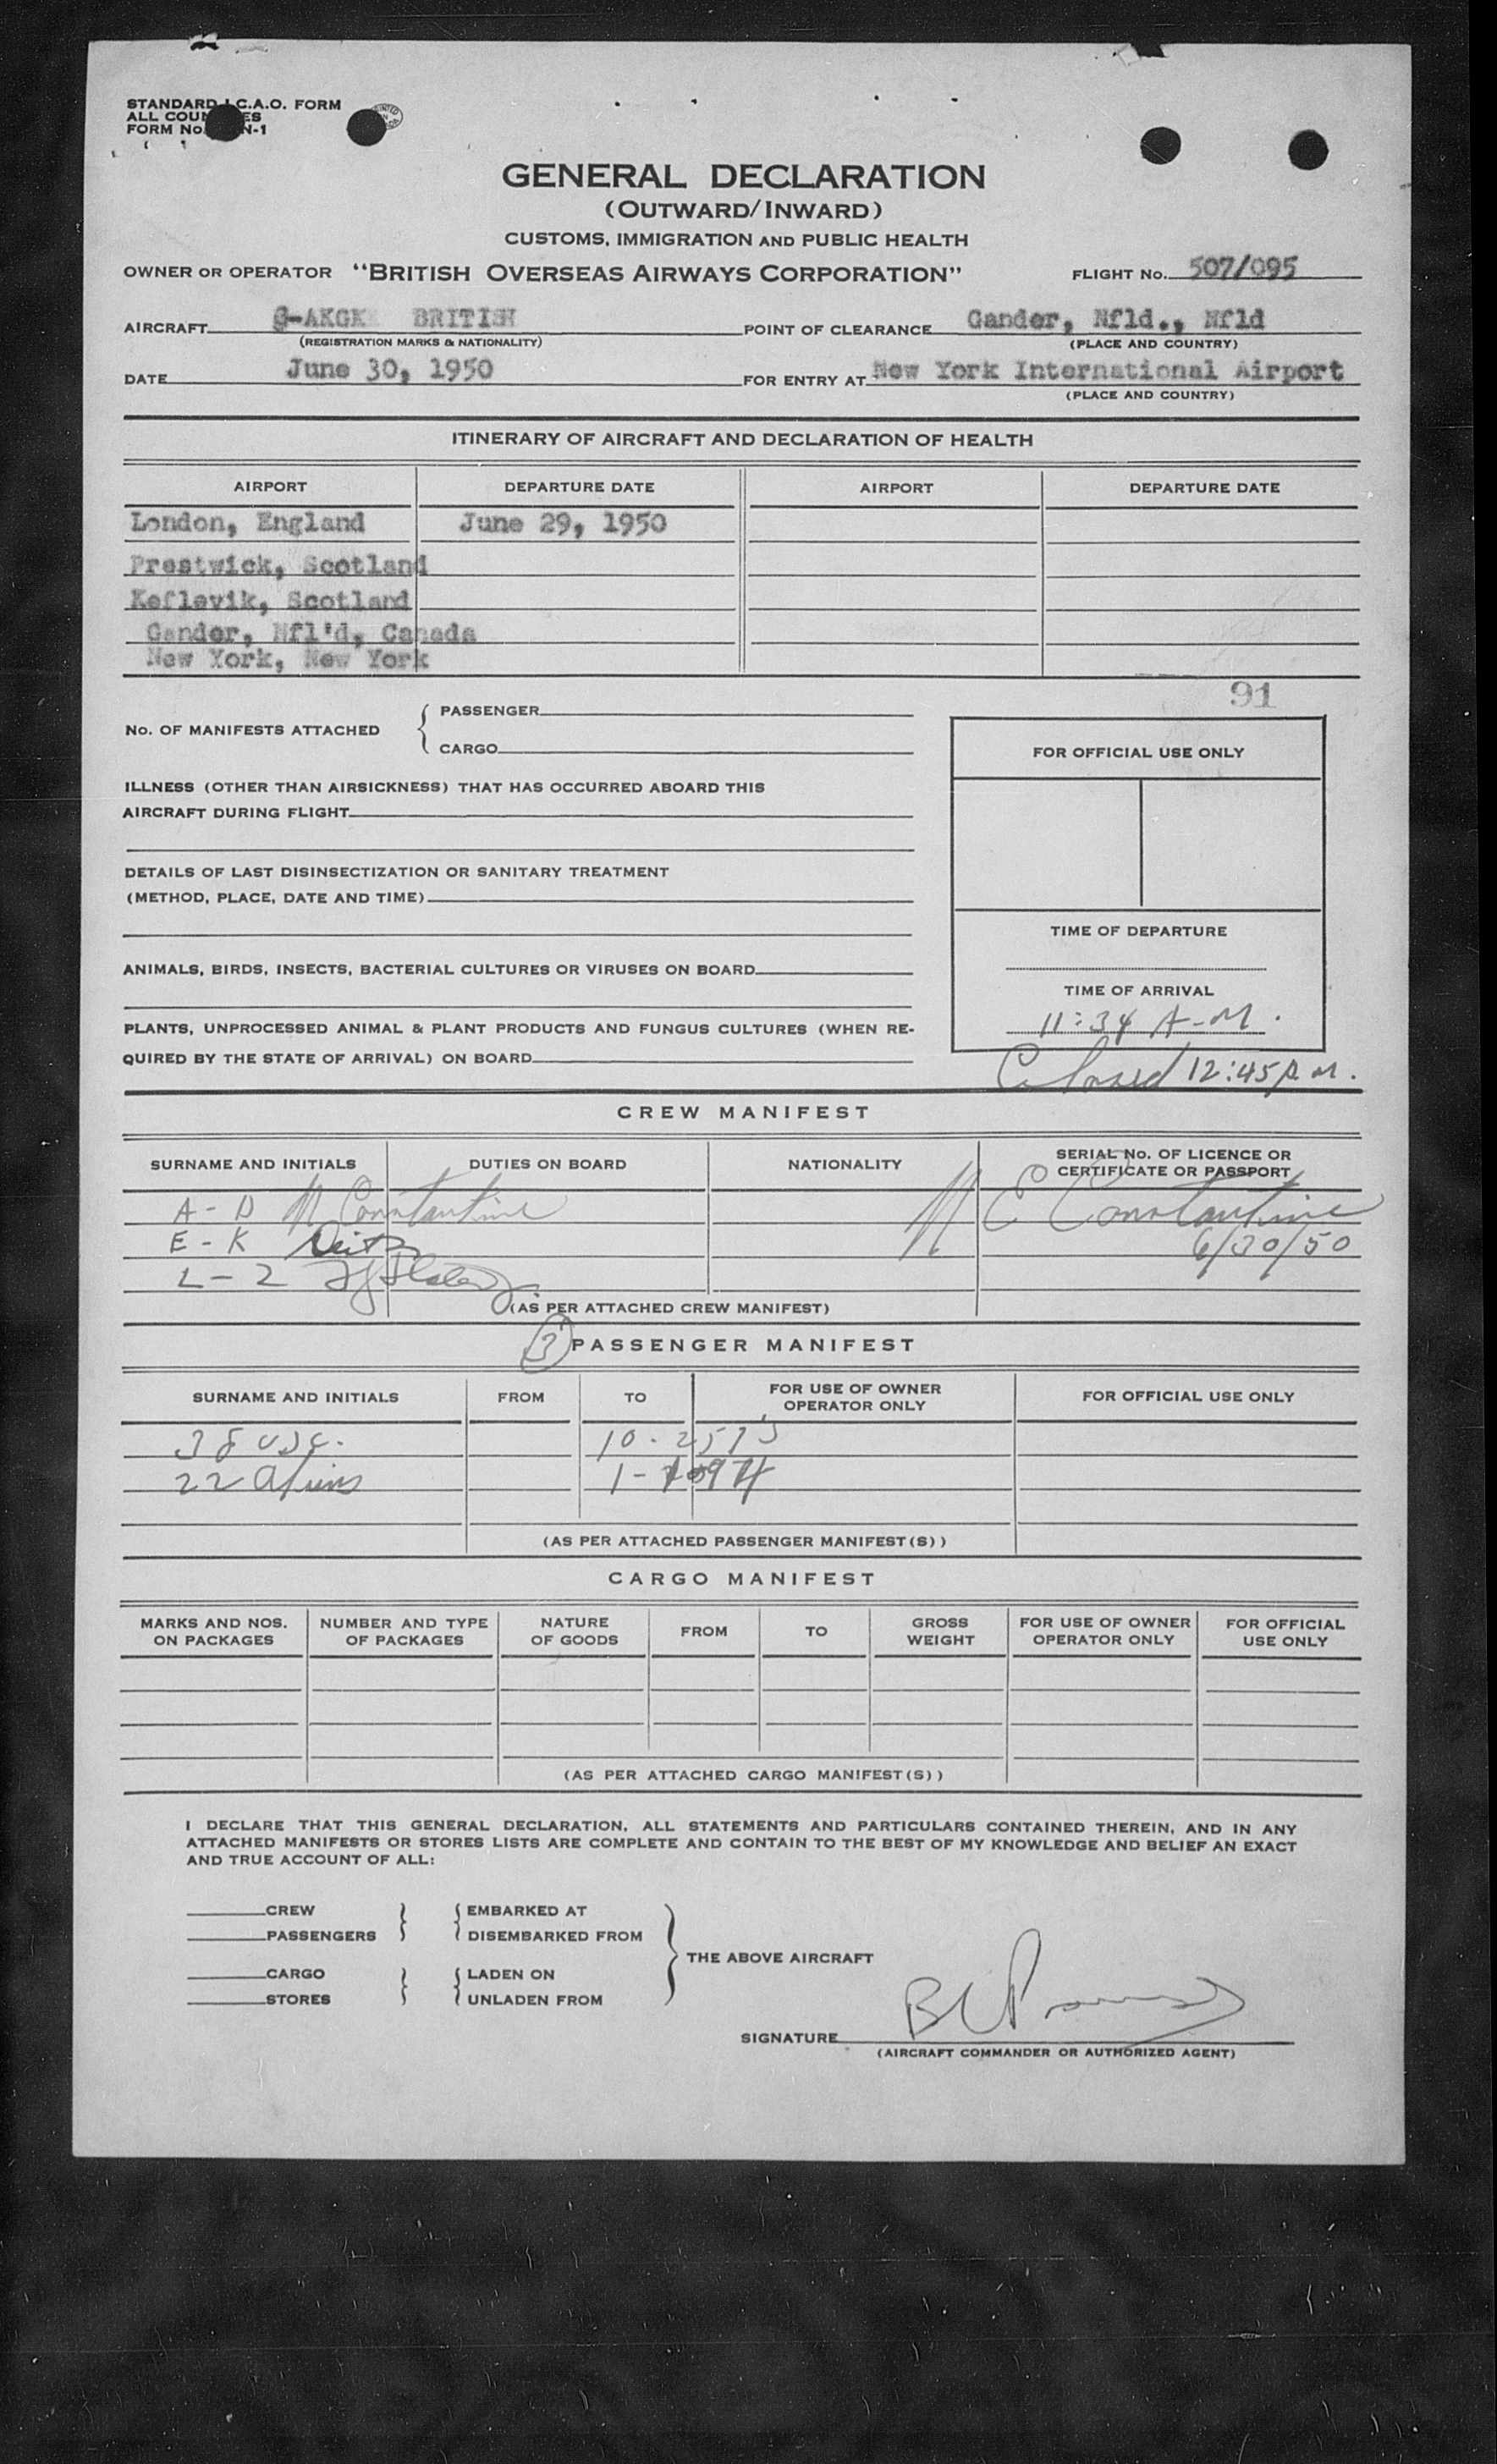 STANDARD I.C.A.O. FORM
ALL COUNTRIES
FORM No. N-1
GENERAL DECLARATION
(OUTWARD/INWARD)
CUSTOMS, IMMIGRATION AND PUBLIC HEALTH
OWNER OR OPERATOR "BRITISH OVERSEAS AIRWAYS CORPORATION" FLIGHT No. 507/095
AIRCRAFT G-AKGK BRITISH POINT OF CLEARANCE Gander, Nfld., Nfld
(REGISTRATION MARKS & NATIONALITY) (PLACE AND COUNTRY)
DATE June 30, 1950 FOR ENTRY AT New York International Airport
(PLACE AND COUNTRY)
ITINERARY OF AIRCRAFT AND DECLARATION OF HEALTH
AIRPORT DEPARTURE DATE AIRPORT DEPARTURE DATE
London, England June 29, 1950
Prestwick, Scotland
Keflavik, Scotland
Gander, Nfl'd, Canada
New York, New York
91
No. OF MANIFESTS ATTACHED { PASSENGER
CARGO
FOR OFFICIAL USE ONLY
ILLNESS (OTHER THAN AIRSICKNESS) THAT HAS OCCURRED ABOARD THIS
AIRCRAFT DURING FLIGHT
DETAILS OF LAST DISINSECTIZATION OR SANITARY TREATMENT
(METHOD, PLACE, DATE AND TIME)
TIME OF DEPARTURE
ANIMALS, BIRDS, INSECTS, BACTERIAL CULTURES OR VIRUSES ON BOARD
TIME OF ARRIVAL
11:34 A-M.
PLANTS, UNPROCESSED ANIMAL & PLANT PRODUCTS AND FUNGUS CULTURES (WHEN RE-
QUIRED BY THE STATE OF ARRIVAL) ON BOARD
12:45 P.M.
CREW MANIFEST
SURNAME AND INITIALS DUTIES ON BOARD NATIONALITY SERIAL No. OF LICENCE OR
CERTIFICATE OR PASSPORT
A-D M Constantine M E Constantine
E-K 6/30/50
L-Z
(AS PER ATTACHED CREW MANIFEST)
3 PASSENGER MANIFEST
SURNAME AND INITIALS FROM TO FOR USE OF OWNER
OPERATOR ONLY FOR OFFICIAL USE ONLY
38 USC.
22 Aliens
(AS PER ATTACHED PASSENGER MANIFEST(S))
CARGO MANIFEST
MARKS AND NOS.
ON PACKAGES NUMBER AND TYPE
OF PACKAGES NATURE
OF GOODS FROM TO GROSS
WEIGHT FOR USE OF OWNER
OPERATOR ONLY FOR OFFICIAL
USE ONLY
(AS PER ATTACHED CARGO MANIFEST(S))
I DECLARE THAT THIS GENERAL DECLARATION, ALL STATEMENTS AND PARTICULARS CONTAINED THEREIN, AND IN ANY
ATTACHED MANIFESTS OR STORES LISTS ARE COMPLETE AND CONTAIN TO THE BEST OF MY KNOWLEDGE AND BELIEF AN EXACT
AND TRUE ACCOUNT OF ALL:
CREW EMBARKED AT
PASSENGERS DISEMBARKED FROM
THE ABOVE AIRCRAFT
CARGO LADEN ON
STORES UNLADEN FROM
SIGNATURE
(AIRCRAFT COMMANDER OR AUTHORIZED AGENT)